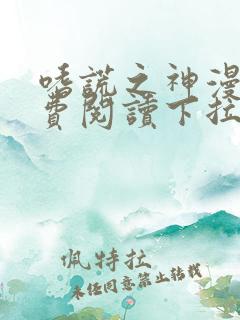 嗜謊之神漫
費閱讀下拉
佩特拉
未经同意禁止转载